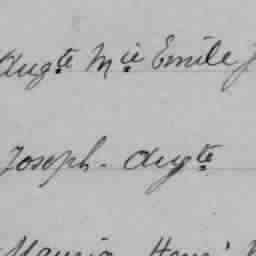 Augte Mie Emile J
Joseph - Augte
Henri